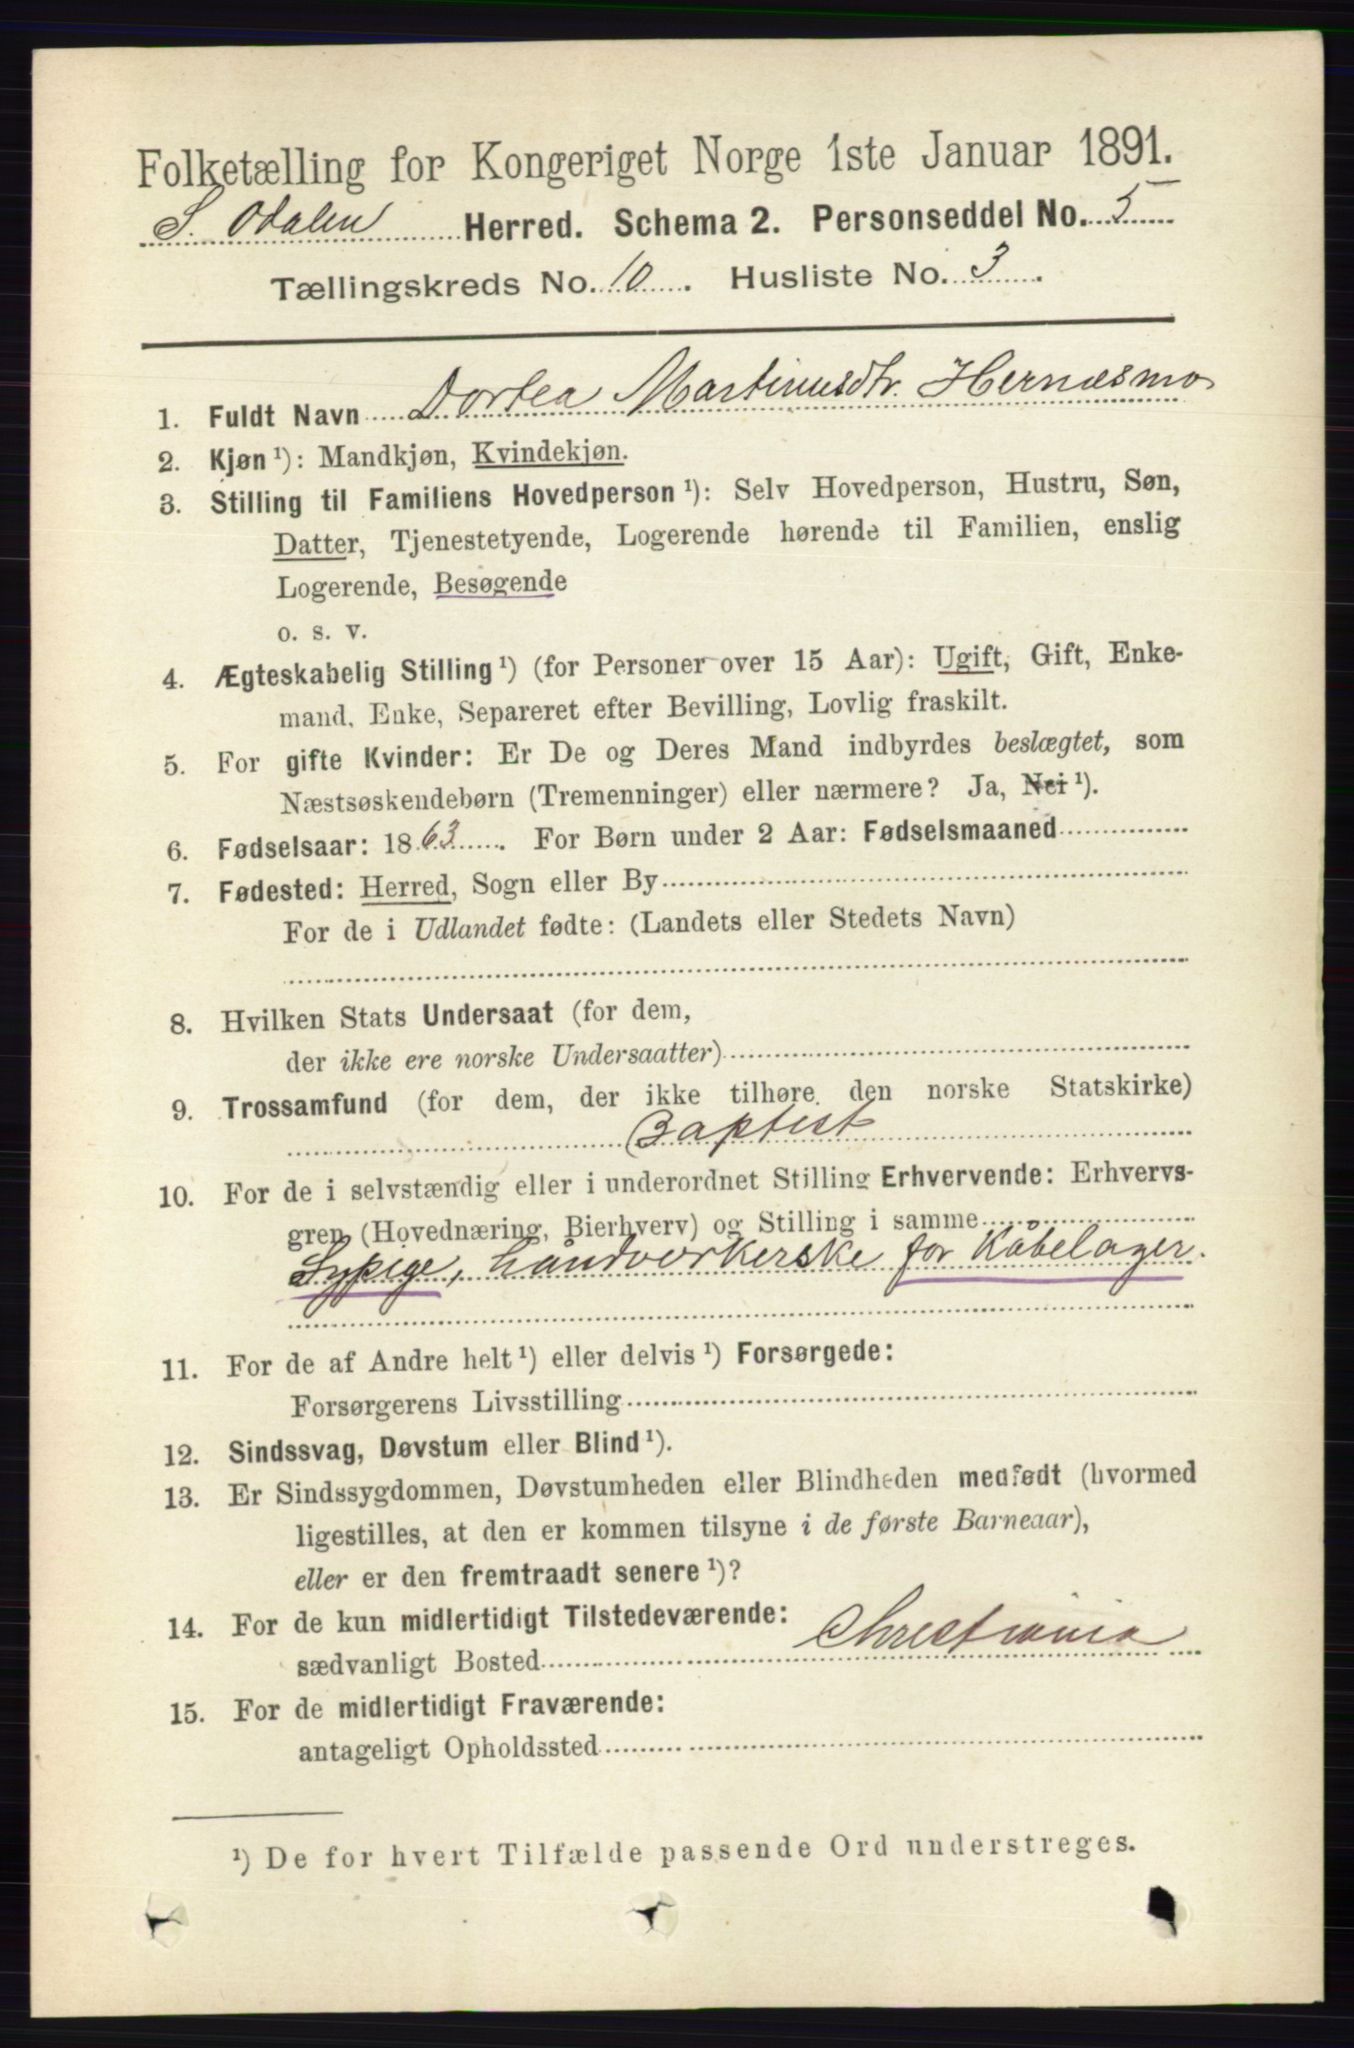 Folketælling for Kongeriget Norge 1ste Januar 1891.
S. Odalen Herred. Schema 2. Personseddel No. 5
Tællingskreds No. 10. Husliste No. 3.
1. Fuldt Navn Dortea Martinusdtr. Hernæsmo
2. Kjøn ¹): Mandkjøn, Kvindekjøn.
3. Stilling til Familiens Hovedperson ¹): Selv Hovedperson, Hustru, Søn,
Datter, Tjenestetyende, Logerende hørende til Familien, enslig
Logerende, Besøgende
o. s. v.
4. Ægteskabelig Stilling ¹) (for Personer over 15 Aar): Ugift, Gift, Enke-
mand, Enke, Separeret efter Bevilling, Lovlig fraskilt.
5. For gifte Kvinder: Er De og Deres Mand indbyrdes beslægtet, som
Næstsøskendebørn (Tremenninger) eller nærmere? Ja, Nei ¹).
6. Fødselsaar: 1863. For Børn under 2 Aar: Fødselsmaaned
7. Fødested: Herred, Sogn eller By
For de i Udlandet fødte: (Landets eller Stedets Navn)
8. Hvilken Stats Undersaat (for dem,
der ikke ere norske Undersaatter)
9. Trossamfund (for dem, der ikke tilhøre den norske Statskirke)
Baptist
10. For de i selvstændig eller i underordnet Stilling Erhvervende: Erhvervs-
gren (Hovednæring, Bierhverv) og Stilling i samme
Sypige, Håndverkerske for Kåbelager.
11. For de af Andre helt ¹) eller delvis ¹) Forsørgede:
Forsørgerens Livsstilling
12. Sindssvag, Døvstum eller Blind ¹).
13. Er Sindssygdommen, Døvstumheden eller Blindheden medfødt (hvormed
ligestilles, at den er kommen tilsyne i de første Barneaar),
eller er den fremtraadt senere ¹)?
14. For de kun midlertidigt Tilstedeværende:
sædvanligt Bosted Christiania
15. For de midlertidigt Fraværende:
antageligt Opholdssted
¹) De for hvert Tilfælde passende Ord understreges.